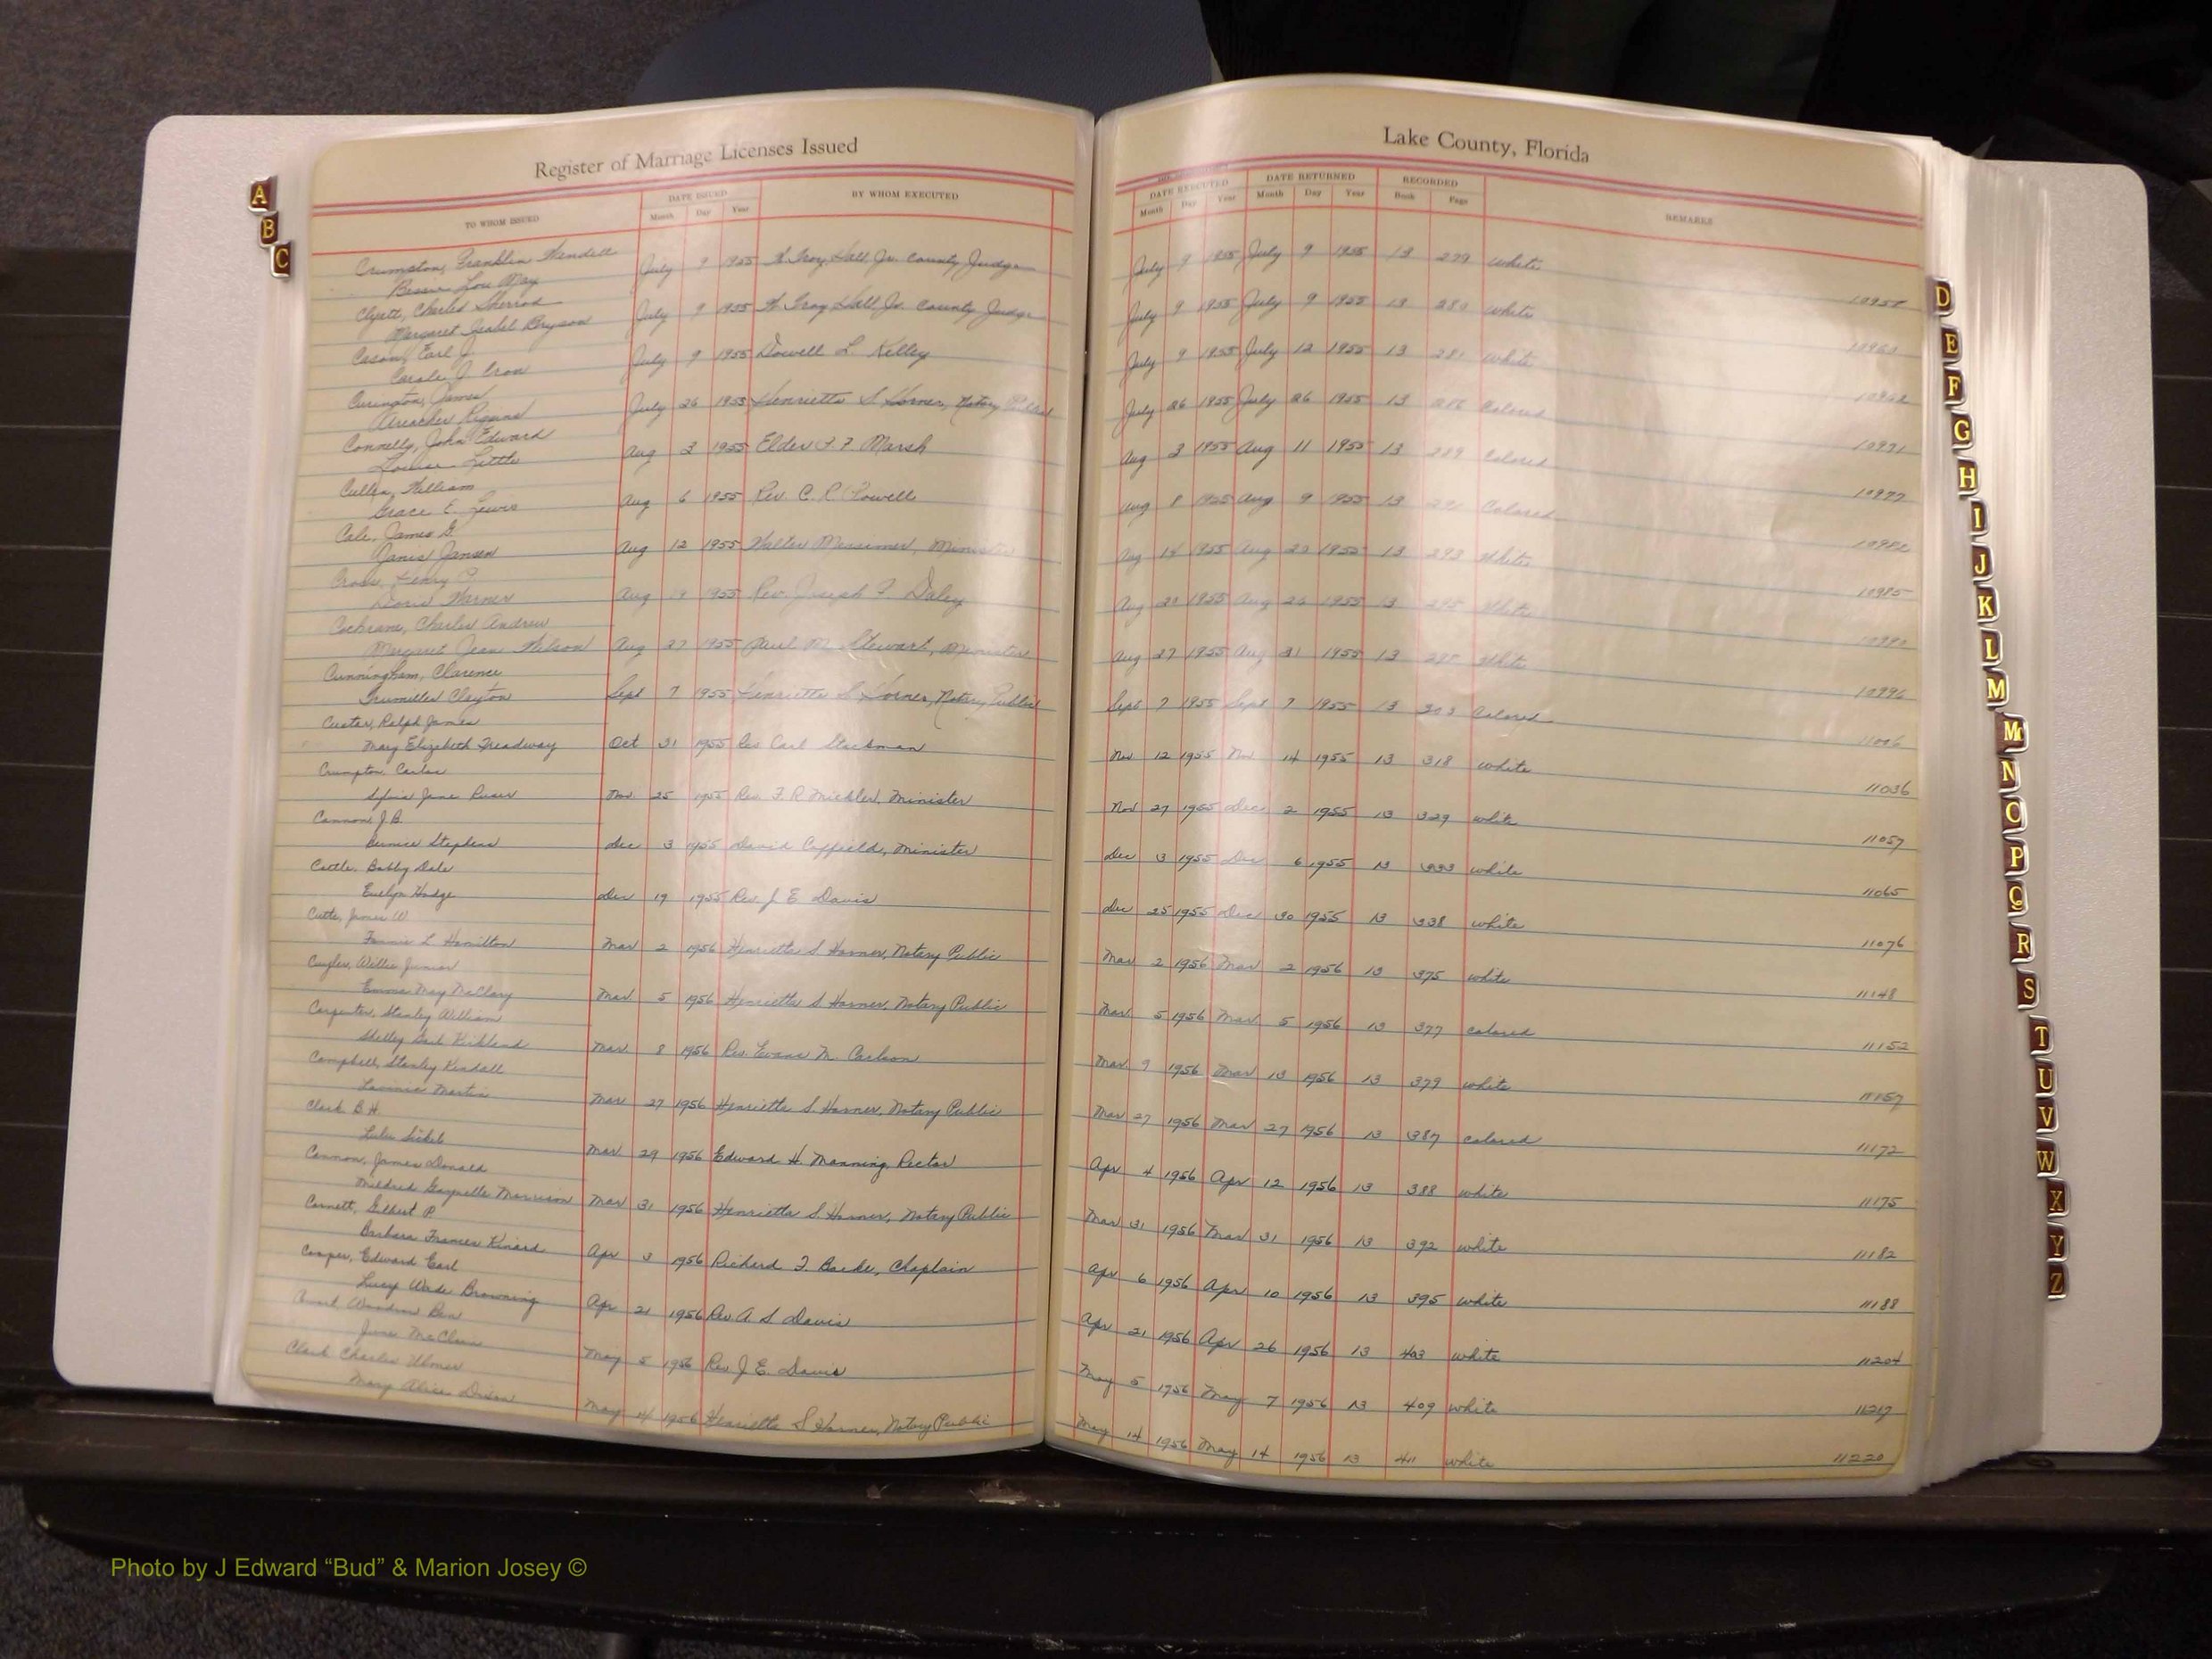 Register of Marriage Licenses Issued
Lake County, Florida
TO WHOM ISSUED
DATE ISSUED
Month Day Year
BY WHOM EXECUTED
DATE EXECUTED
Month Day Year
DATE RETURNED
Month Day Year
RECORDED
Book Page
REMARKS
Crumpton, Franklin Wendell
Bessie Lou May July 9 1955 W. Troy Hall Jr. County Judge July 9 1955 July 9 1955 13 279 White
Clyatt, Charles Sherrod
Margaret Isabel Bryson July 9 1955 W Troy Hall Jr. County Judge July 9 1955 July 9 1955 13 280 White
Cason, Earl J.
Carole J. Cron July 9 1955 Dowell L. Kelley July 9 1955 July 12 1955 13 281 White
Curington, James
July 26 1955 Henrietta S Horner, Notary Public July 26 1955 July 26 1955 13 Colored 10971
Connelly, John Edward
Louise Little Aug 3 1955 Elder F. F Marsh Aug 3 1955 Aug 11 1955 13 289 Colored 10977
Cullen, William
Grace E. Lewis Aug 6 1955 Rev. C. R. Powell Aug 8 1955 Aug 9 1955 13 Colored
Cale, James G.
Janis Jansen Aug 12 1955 Walter Messimer, Minister Aug 14 1955 Aug 1955 13 293 White 10985
Cross, Henry P.
Doris Warner Aug 19 1955 Rev. Joseph F. Daley Aug 20 1955 Aug 1955 13 White 10990
Cochrane, Charles Andrew
Margaret Jean Wilson Aug 27 1955 Paul M. Stewart, Minister Aug 27 1955 Aug 31 1955 13 White 10996
Cunningham, Clarence
Clayton Sept 7 1955 Henrietta S Horner, Notary Public Sept 7 1955 Sept 7 1955 13 303 Colored 11006
Custer, Ralph James
Mary Elizabeth Treadway Oct 31 1955 Rev Carl Stackman Nov 12 1955 Nov 14 1955 13 318 white 11036
Crumpton Carlos
Sylvia Jane Nov 25 1955 Rev. F. R. Mickler, Minister Nov 27 1955 Dec 2 1955 13 329 white 11057
Cannon J.B.
Bernice Stephens Dec 3 1955 David Coffield, Minister Dec 3 1955 Dec 6 1955 13 333 white 11065
Cottle, Bobby Dale
Evelyn Hodge Dec 19 1955 Rev. J E Davis Dec 25 1955 Dec 30 1955 13 338 white 11076
Cutts, James W
Fannie L Hamilton Mar 2 1956 Henrietta S Horner, Notary Public Mar 2 1956 Mar 2 1956 13 375 white 11148
Willie Junior
Emma May McClary Mar 5 1956 Henrietta S Horner, Notary Public Mar 5 1956 Mar 5 1956 13 377 colored 11152
Carpenter, Stanley William
Shelley Gail Kirkland Mar 8 1956 Rev. Evans M. Carlson Mar 9 1956 Mar 13 1956 13 379 white 11157
Campbell, Stanley Kendall
Martin Mar 27 1956 Henrietta S. Horner, Notary Public Mar 27 1956 Mar 27 1956 13 387 colored 11172
Clark B. H.
Lulu Sickels Mar 29 1956 Edward H. Manning Rector Apr 4 1956 Apr 12 1956 13 388 white 11175
Cannon, James Donald
Mildred Gaynelle Morrison Mar 31 1956 Henrietta S. Horner, Notary Public Mar 31 1956 Mar 31 1956 13 392 white 11182
Cornett, Gilbert P.
Barbara Frances Kinard Apr 3 1956 Richard F. Chaplain Apr 6 1956 Apr 10 1956 13 395 white 11188
Cooper, Edward Earl
Lucy Wade Browning Apr 21 1956 Rev. A S Davis Apr 21 1956 Apr 26 1956 13 403 white 11204
Woodrow Ben
June May 5 1956 Rev. J. E. Davis May 5 1956 May 7 1956 13 409 white 11217
Clark Charles Ulmer
Mary Alice Dixon May 14 1956 Henrietta S Horner, Notary Public May 14 1956 May 14 1956 13 411 white 11220
A
B
C
D
E
F
G
H
I
J
K
L
M
Mc
N
O
P
Q
R
S
T
U
V
W
X
Y
Z
Photo by J Edward “Bud” & Marion Josey ©